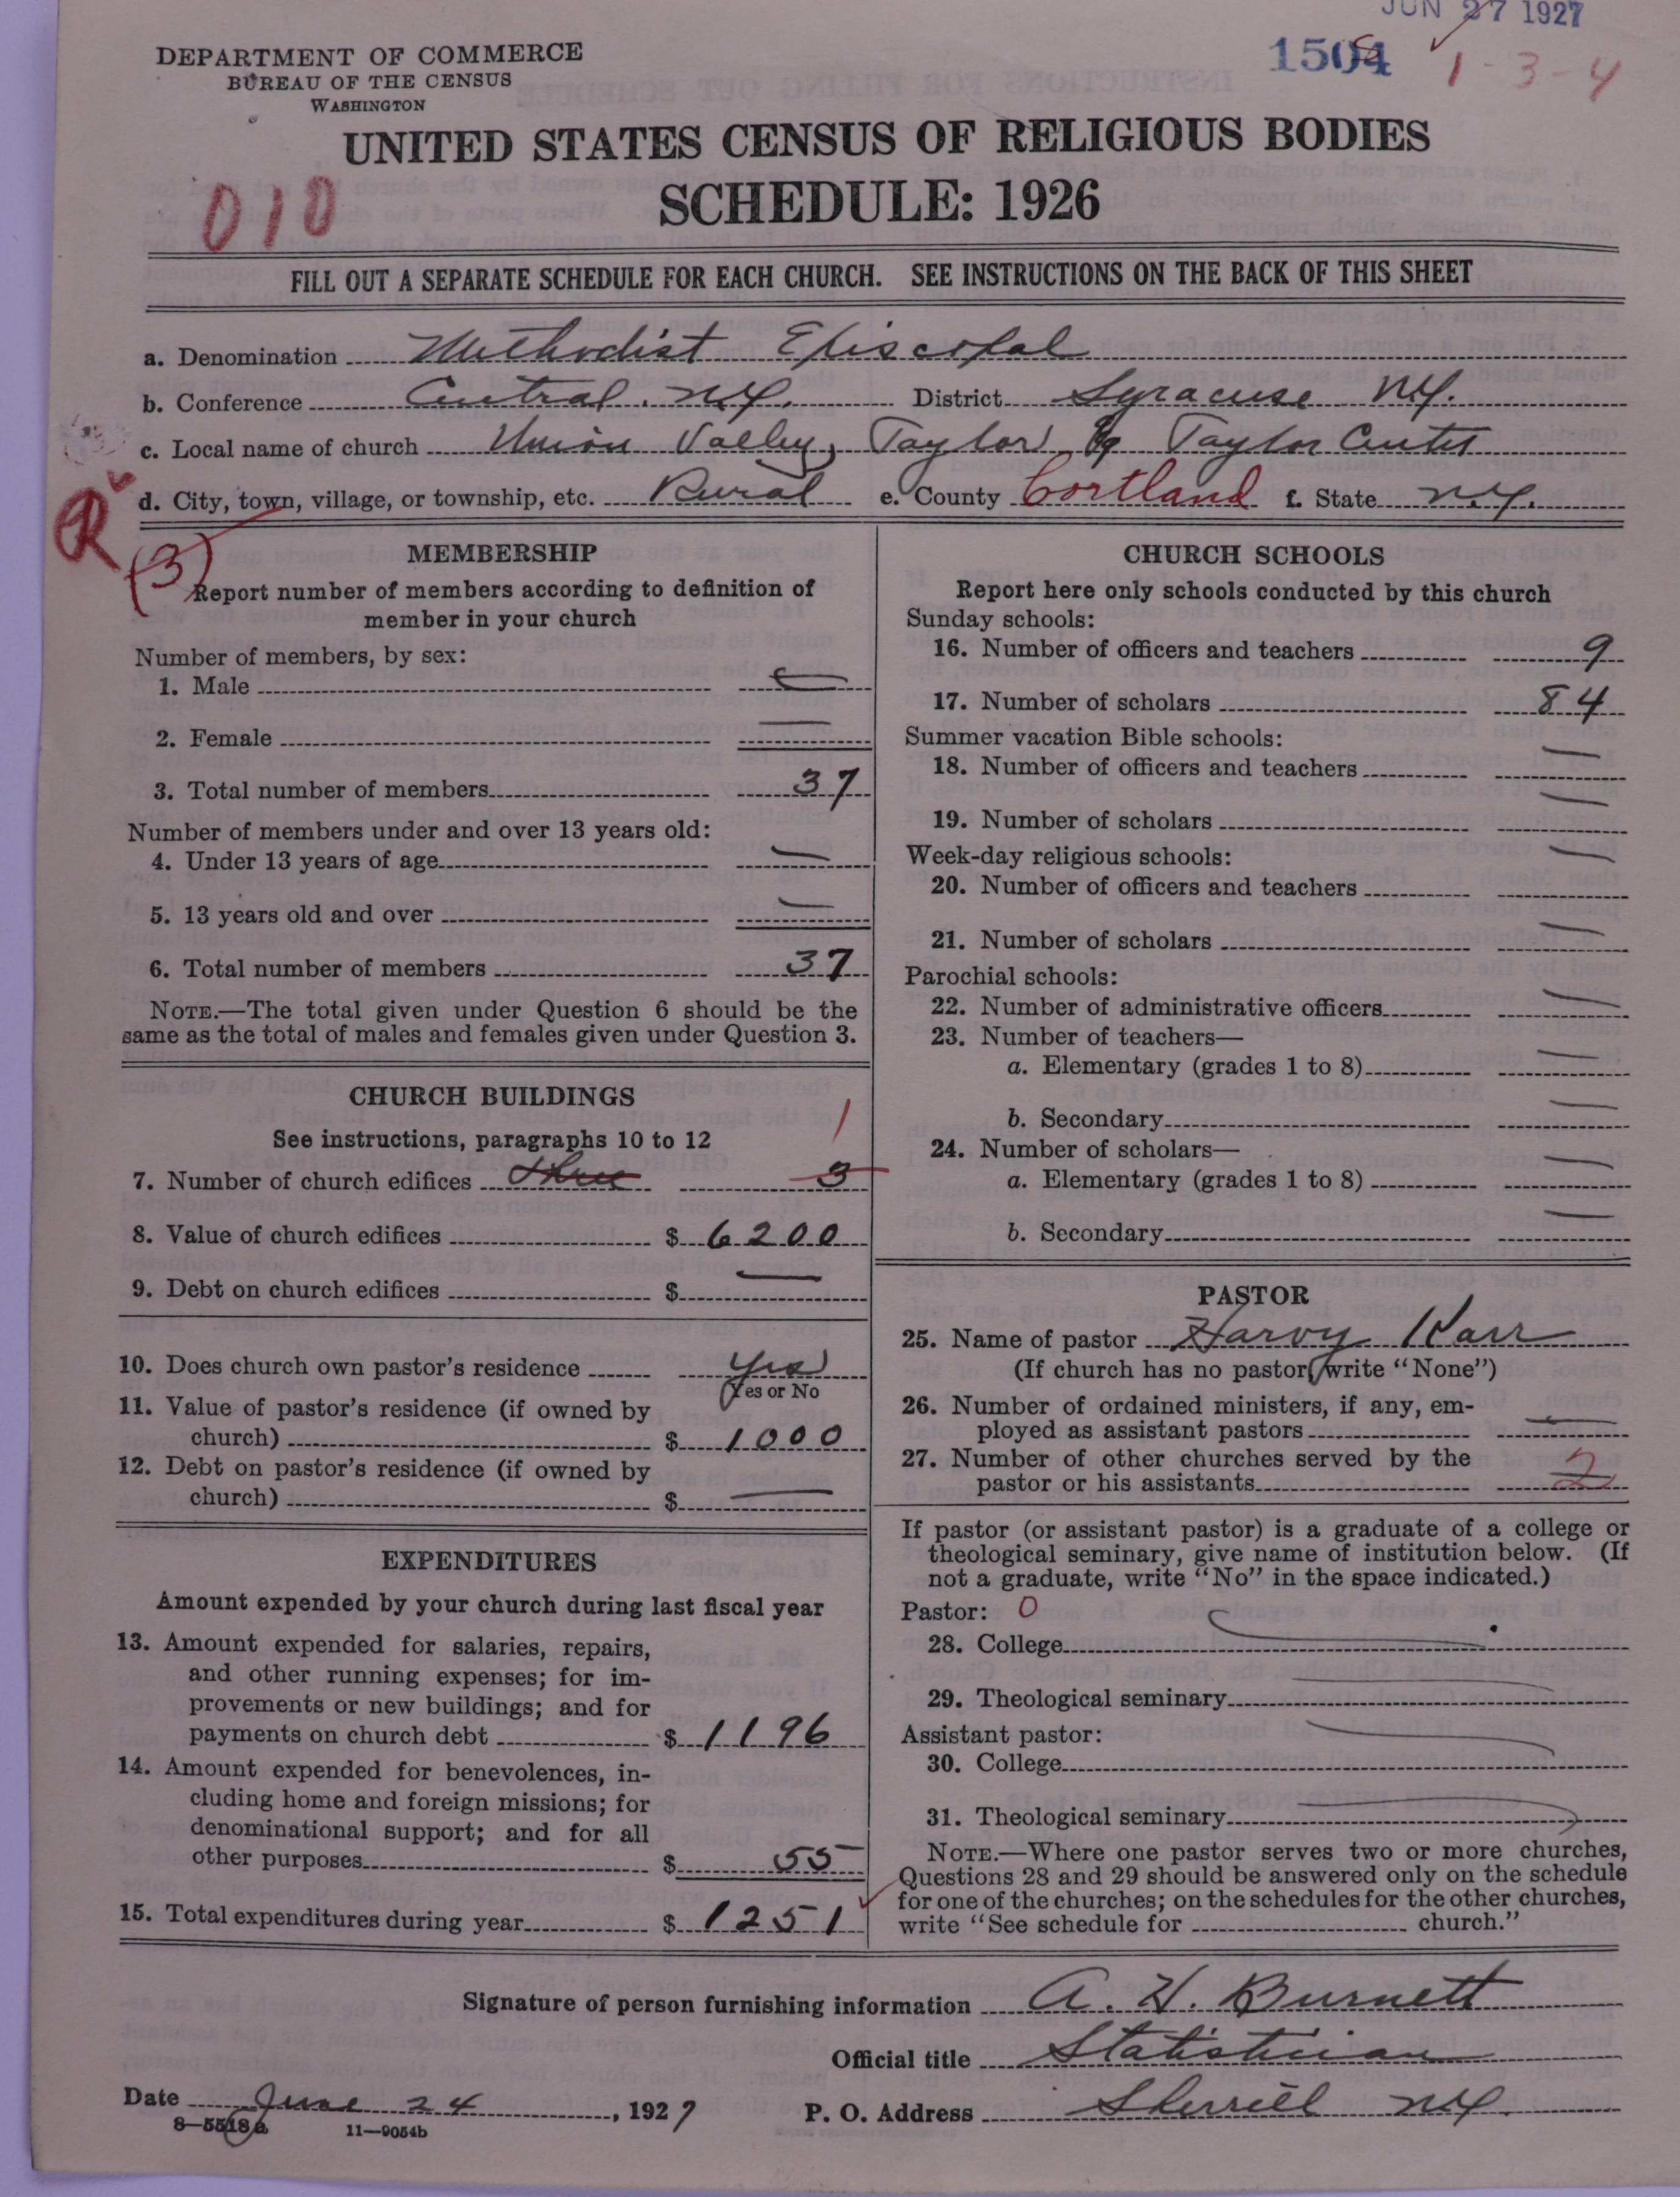 JUN 27 1927
1504
1-3-4
DEPARTMENT OF COMMERCE
BUREAU OF THE CENSUS
WASHINGTON
UNITED STATES CENSUS OF RELIGIOUS BODIES
SCHEDULE: 1926
010
FILL OUT A SEPARATE SCHEDULE FOR EACH CHURCH. SEE INSTRUCTIONS ON THE BACK OF THIS SHEET
a. Denomination Methodist Episcopal
b. Conference Central. N.Y. District Syracuse N.Y.
c. Local name of church Union Valley, Taylor & Taylor Center
d. City, town, village, or township, etc. Rural e. County Cortland f. State N.Y.
R
(3)
MEMBERSHIP
Report number of members according to definition of
member in your church
Number of members, by sex:
1. Male
2. Female
3. Total number of members 37
Number of members under and over 13 years old:
4. Under 13 years of age
5. 13 years old and over
6. Total number of members 37
NOTE.—The total given under Question 6 should be the
same as the total of males and females given under Question 3.
CHURCH BUILDINGS
See instructions, paragraphs 10 to 12
1
7. Number of church edifices three 3
8. Value of church edifices $ 6200
9. Debt on church edifices $ —
10. Does church own pastor's residence Yes
Yes or No
11. Value of pastor's residence (if owned by
church) $ 1000
12. Debt on pastor's residence (if owned by
church) $ —
EXPENDITURES
Amount expended by your church during last fiscal year
13. Amount expended for salaries, repairs,
and other running expenses; for im-
provements or new buildings; and for
payments on church debt $ 1196
14. Amount expended for benevolences, in-
cluding home and foreign missions; for
denominational support; and for all
other purposes $ 55
15. Total expenditures during year $ 1251
CHURCH SCHOOLS
Report here only schools conducted by this church
Sunday schools:
16. Number of officers and teachers 9
17. Number of scholars 84
Summer vacation Bible schools:
18. Number of officers and teachers —
19. Number of scholars —
Week-day religious schools:
20. Number of officers and teachers —
21. Number of scholars —
Parochial schools:
22. Number of administrative officers —
23. Number of teachers—
a. Elementary (grades 1 to 8) —
b. Secondary —
24. Number of scholars—
a. Elementary (grades 1 to 8) —
b. Secondary —
PASTOR
25. Name of pastor Harvy Karr
(If church has no pastor, write "None")
26. Number of ordained ministers, if any, em-
ployed as assistant pastors —
27. Number of other churches served by the
pastor or his assistants 2
If pastor (or assistant pastor) is a graduate of a college or
theological seminary, give name of institution below. (If
not a graduate, write "No" in the space indicated.)
Pastor: 0
28. College
29. Theological seminary
Assistant pastor:
30. College
31. Theological seminary
NOTE.—Where one pastor serves two or more churches,
Questions 28 and 29 should be answered only on the schedule
for one of the churches; on the schedules for the other churches,
write "See schedule for church."
Signature of person furnishing information A. H. Burnett
Official title Statistician
Date June 24, 1927 P. O. Address Sherrill N.Y.
8—5518a 11—9054b